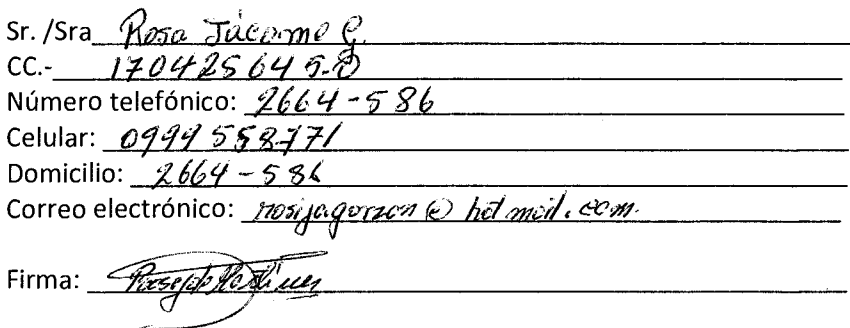 Sr. /Sra Rosa Jácome G.
CC.- 170425645-0
Número telefónico: 2664-586
Celular: 0999558771
Domicilio: 2664-586
Correo electrónico: @ hotmail.com.
Firma: